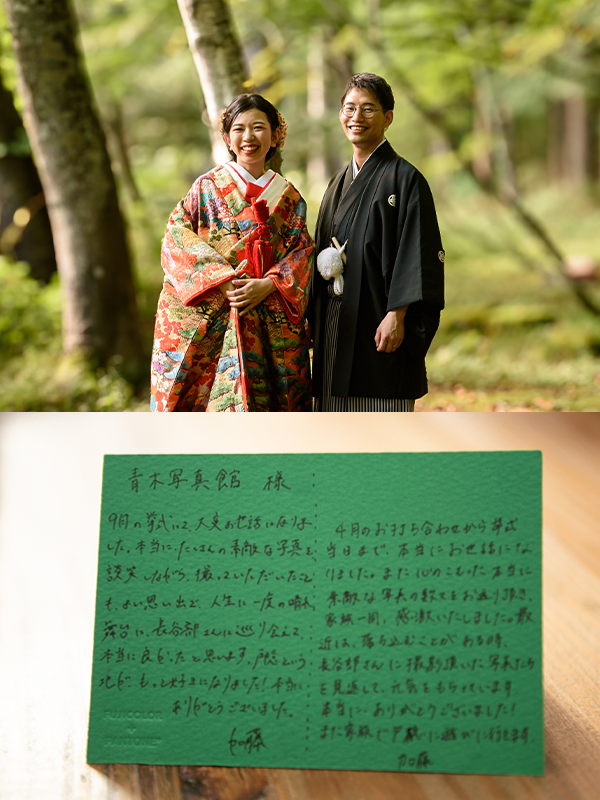 青木写真館 様
9月の挙式にて、大変お世話になりま
した。本当に、たくさんの素敵な写真を、
談笑しながら、撮っていただいたこと
も、よい思い出で、人生に一度の晴れ
舞台に、長谷部さんに巡り会えて、
本当に良かったと思います。戸隠という
地が、もっと好きになりました！本当に
ありがとうございました。
加藤
4月のお打ち合わせから挙式
当日まで、本当にお世話にな
りました。また心のこもった本当に
素敵な写真の数々をお送り頂き、
家族一同、感激いたしました。最
近は、落ち込むことがある時、
長谷部さんに撮影頂いた写真たち
を見返して、元気をもらっています。
本当に、ありがとうございました！
また家族で戸隠に遊びに行きます。
加藤
FUJICOLOR
+
PANTONE